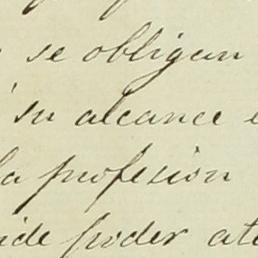 se obligan
su alcance
la profesion
ide poder ate